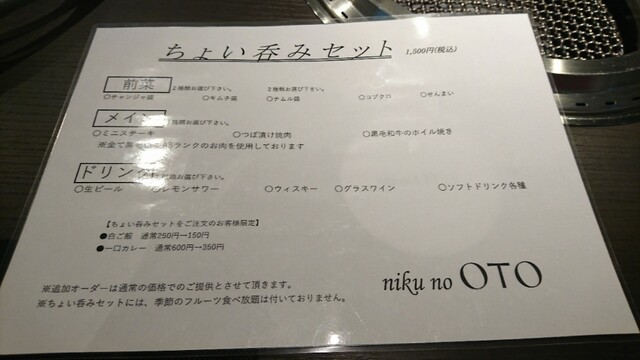 ちょい呑みセット 1,500円(税込)
前菜 2種類お選び下さい。 2種類お選び下さい。
○チャンジャ盛 ○キムチ盛 ○ナムル盛 ○コブクロ ○せんまい
メイン お選び下さい。
○ミニステーキ ○つぼ漬け焼肉 ○黒毛和牛のホイル焼き
ランクのお肉を使用しております
ドリンク お選び下さい。
○生ビール ○レモンサワー ○ウィスキー ○グラスワイン ○ソフトドリンク各種
【ちょい呑みセットをご注文のお客様限定】
●白ご飯 通常250円→150円
●一口カレー 通常600円→350円
※追加オーダーは通常の価格でのご提供とさせて頂きます。
※ちょい呑みセットには、季節のフルーツ食べ放題は付いておりません。
niku no OTO